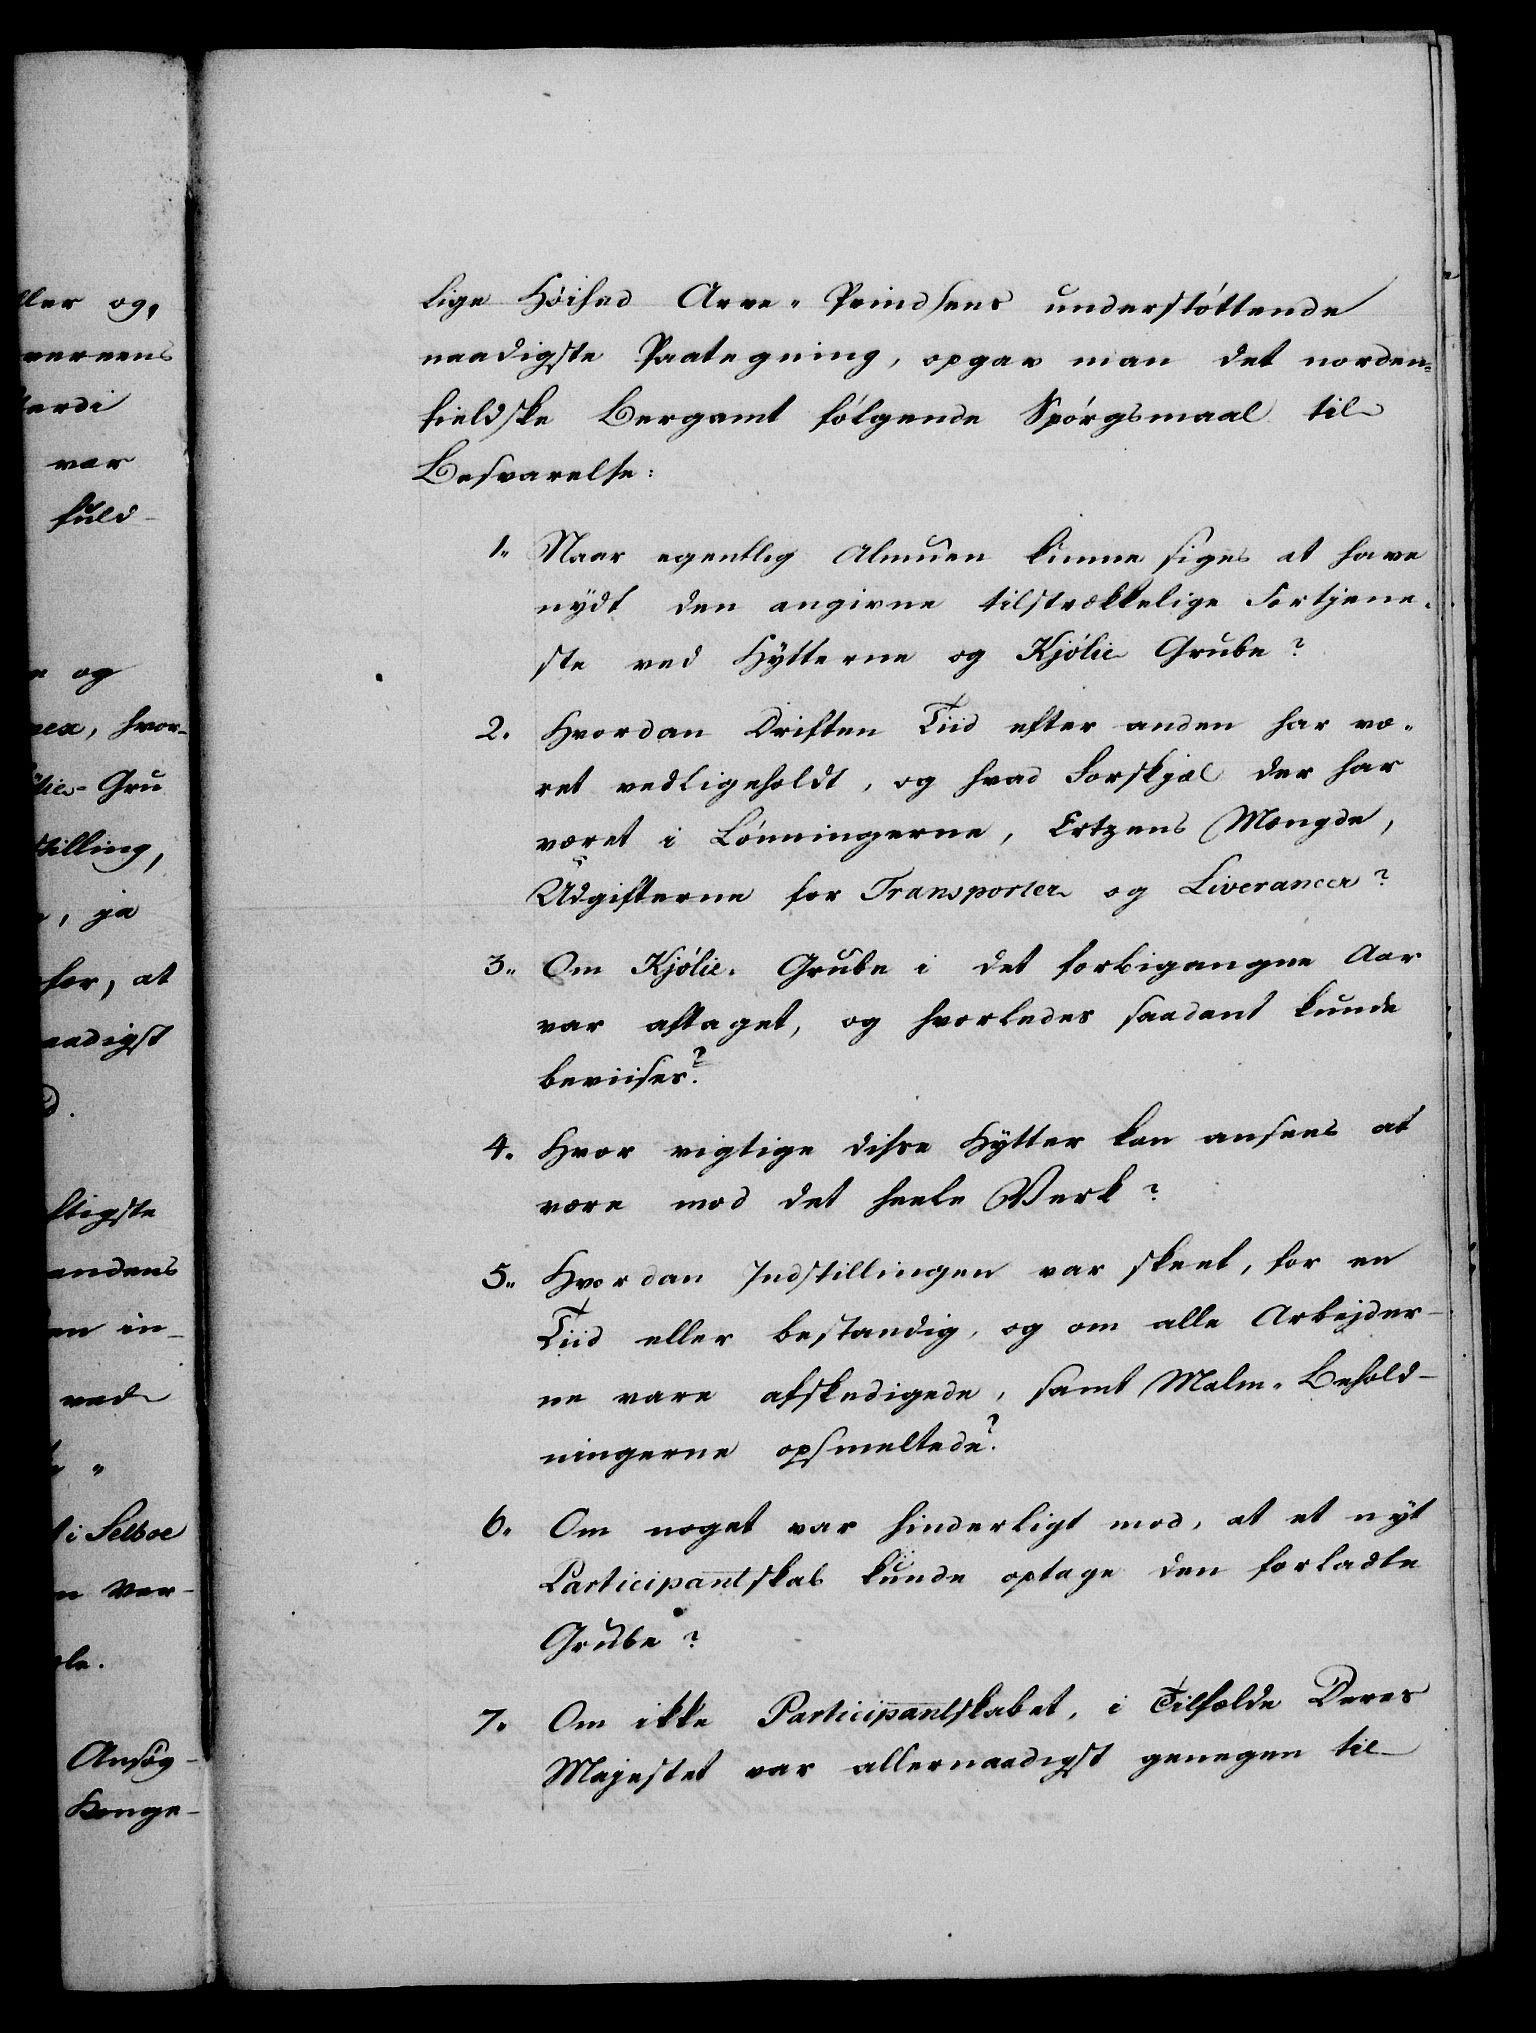 ller og,
verens
erdi
var
fuld-
og
nex, hvor-
lie-Gru
stilling,
, ja
for, at
aadigst
d.
ftigste
andens
en in-
ved
i Selboe
n Ver-
ole.
Ansøg-
Konge-
lige Høihed Arve-Prindsens understøttende
naadigste Paategning, opgav man det norden-
fieldske Bergamt følgende Spørgsmaal til
Besvarelse:
1. Naar egentlig Almuen kunne siges at have
nydt den angivne tilstrækkelige Fortjene-
ste ved Hytterne og Kjølie Grube?
2. Hvordan Driften Tiid efter anden har væ-
ret vedligeholdt, og hvad Forskjæl der har
været i Lønningerne, Ertzens Mængde,
Udgifterne for Transporter og Liverancer?
3. Om Kjølie-Grube i det forbigangne Aar
var aftaget, og hvorledes saadant kunde
beviises?
4. Hvor vigtige disse Hytter kan ansees at
være mod det heele Verk?
5. Hvordan Indstillingen var skeet, for en
Tiid eller bestandig, og om alle Arbejder-
ne vare afskedigede, samt Malm-Behold-
ningerne opsmeltede?
6. Om noget var hinderligt mod, at et nyt
Participantskab kunde optage den forladte
Grube?
7. Om ikke Participantskabet, i Tilfælde Deres
Majestet var allernaadigst genegen til